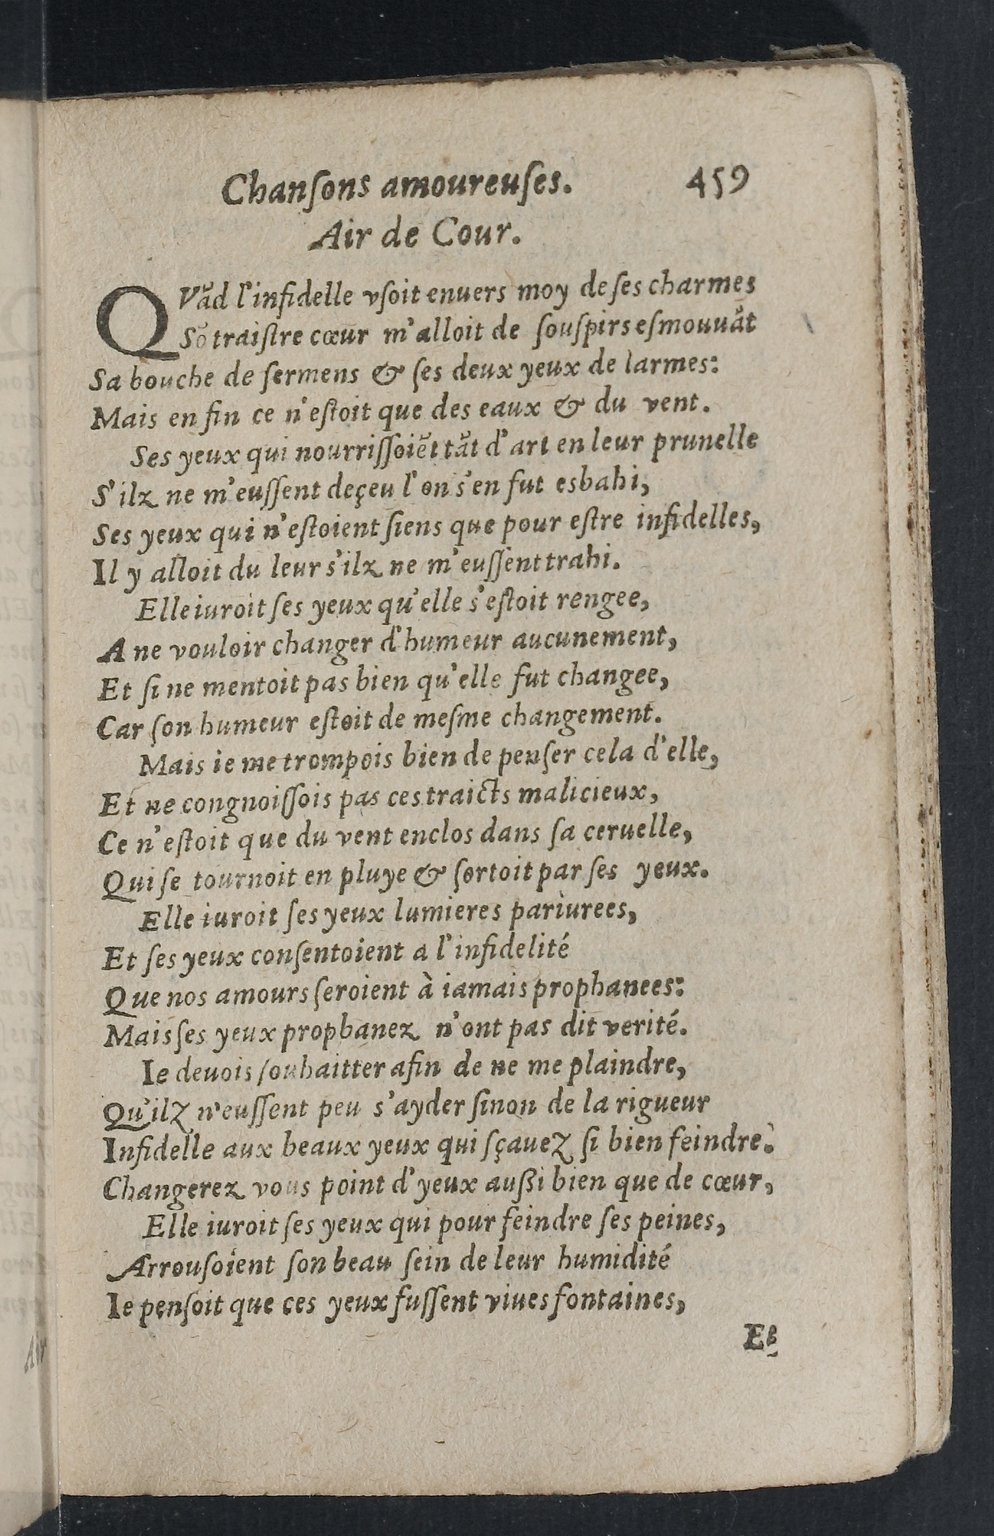 Chanſons amoureuſes. 459
Air de Cour.
QVād l'infidelle vſoit enuers moy de ſes charmes
Sō traiſtre cœur m'alloit de ſouſpirs eſmouuāt
Sa bouche de ſermens & ſes deux yeux de larmes:
Mais en fin ce n'eſtoit que des eaux & du vent.
Ses yeux qui nourriſſoiēt tāt d'art en leur prunelle
S'ilz ne m'euſſent deçeu l'on s'en fut esbahi,
Ses yeux qui n'eſtoient ſiens que pour eſtre infidelles,
Il y alloit du leur s'ilz ne m'euſſent trahi.
Elle iuroit ſes yeux qu'elle s'eſtoit rengee,
A ne vouloir changer d'humeur aucunement,
Et ſi ne mentoit pas bien qu'elle fut changee,
Car ſon humeur eſtoit de meſme changement.
Mais ie me trompois bien de penſer cela d'elle,
Et ne congnoiſſois pas ces traicts malicieux,
Ce n'eſtoit que du vent enclos dans ſa ceruelle,
Qui ſe tournoit en pluye & ſortoit par ſes yeux.
Elle iuroit ſes yeux lumieres pariurees,
Et ſes yeux conſentoient a l'infidelité
Que nos amours ſeroient à iamais prophanees:
Mais ſes yeux prophanez n'ont pas dit verité.
Ie deuois ſouhaitter afin de ne me plaindre,
Qu'ilz n'euſſent peu s'ayder ſinon de la rigueur
Infidelle aux beaux yeux qui ſçauez ſi bien feindre.
Changerez vous point d'yeux auſſi bien que de cœur,
Elle iuroit ſes yeux qui pour feindre ſes peines,
Arrouſoient ſon beau ſein de leur humidité
Ie penſoit que ces yeux fuſſent viues fontaines,
Et